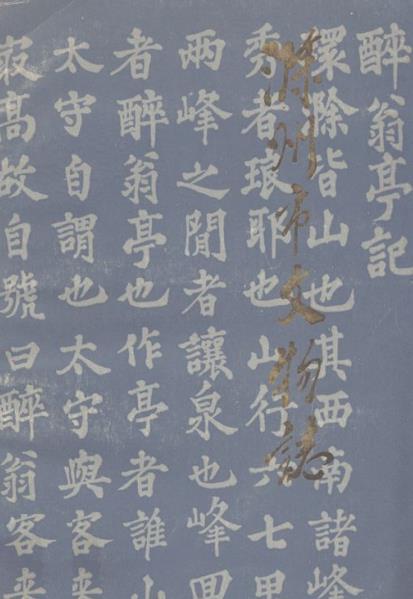 滁州市文物誌
醉翁亭記
環滁皆山也其西南諸峰
秀者琅耶也山行六七里
兩峰之間者讓泉也峰回
者醉翁亭也作亭者誰山
太守自謂也太守與客來
最高故自號曰醉翁客來